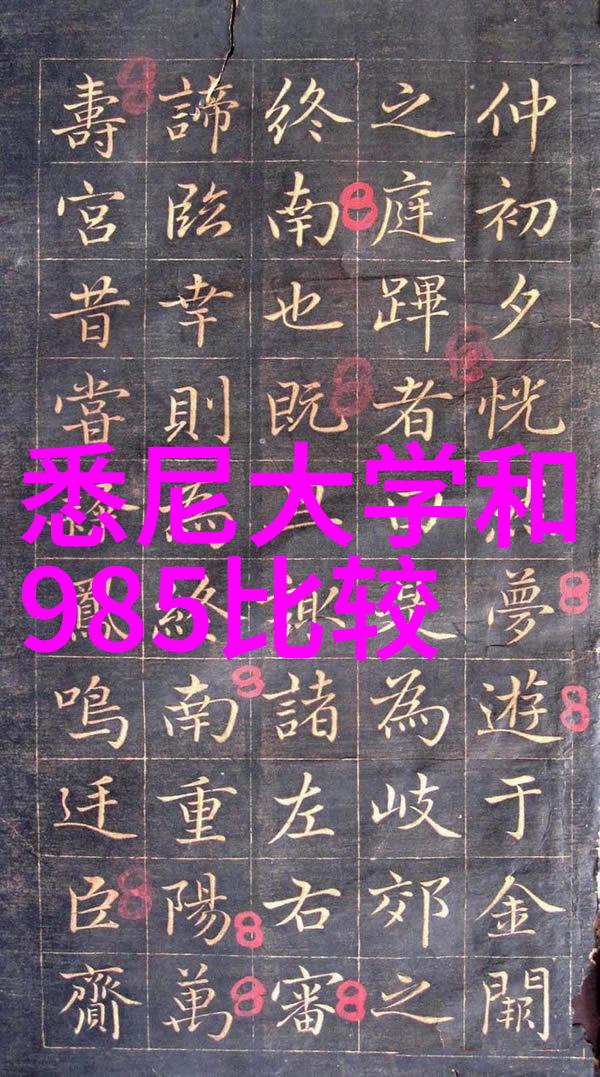 悉尼大学和
985比较
仲初夕恍夢遊于金闕
之庭蹕者為岐郊之
終南也既諸左右審
諦臨幸則為終南重陽萬
壽宮昔嘗鳳鳴迁臣齎